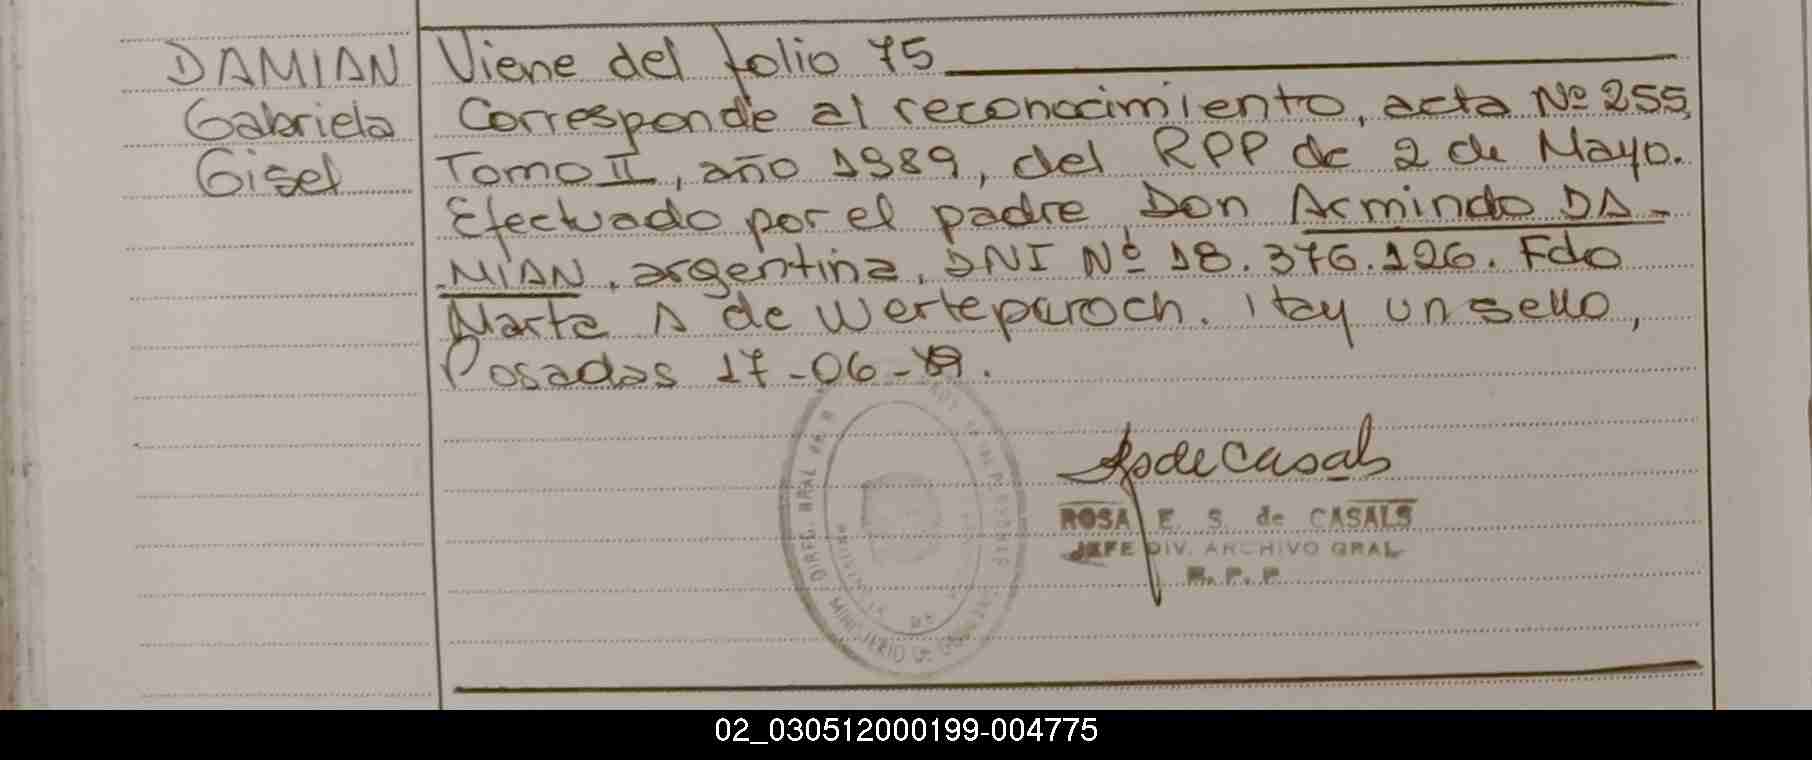 DAMIAN
Gabriela
Gisel
Viene del folio 75
Corresponde al reconocimiento, acta Nº 255,
Tomo II, año 1989, del RPP de 2 de Mayo.
Efectuado por el padre Don Armindo DA-
MIAN, argentina, DNI Nº 18.376.126. Fdo
Marta A de Werteparoch. Hay un sello,
Posadas 17-06-
ROSA E. S. de CASALS
JEFE DIV. ARCHIVO GRAL
R. P. P
02_030512000199-004775